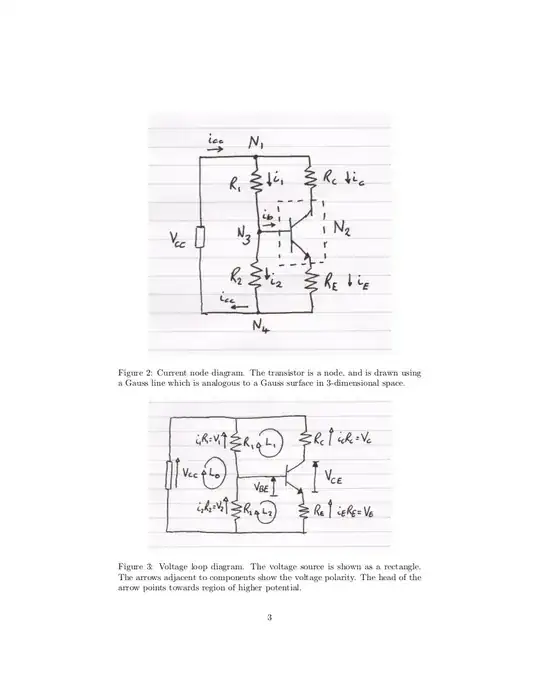 icc
N1
R1
i1
Rc
ic
ib
N2
Vcc
N3
R2
i2
RE
iE
icc
N4
Figure 2: Current node diagram. The transistor is a node, and is drawn using
a Gauss line which is analogous to a Gauss surface in 3-dimensional space.
i1R1=V1
R1
L1
Rc
icRc=Vc
Vcc
L0
VBE
VCE
i2R2=V2
R2
L2
RE
iERE=VE
Figure 3: Voltage loop diagram. The voltage source is shown as a rectangle.
The arrows adjacent to components show the voltage polarity. The head of the
arrow points towards region of higher potential.
3